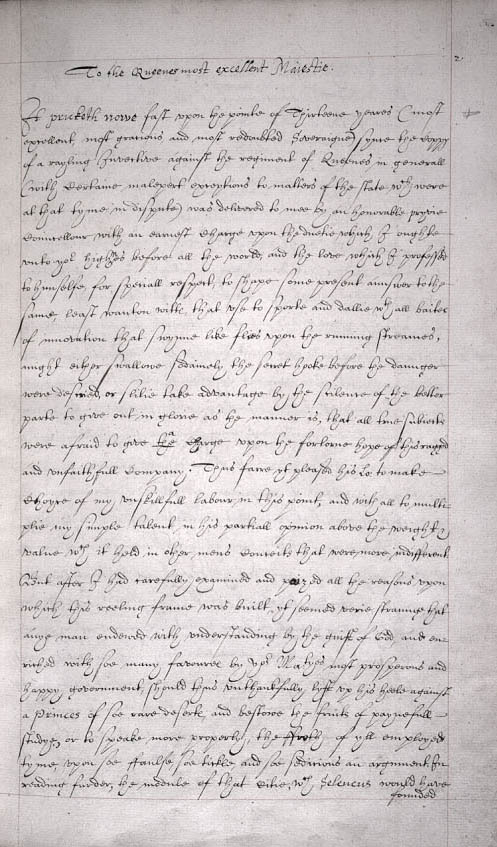 2
To the Queenes most excellent Maiestie.
It pricketh nowe fast vpon the pointe of Thirteene yeares (most
excellent, most gratious and most redoubted Soveraigne) synce the Coppy
of a rayling Invective against the regiment of Queenes in generall
(with certaine malepert exceptions to matters of the state wch were
at that tyme in dispute) was delivered to mee by an honorable pryvie
Councellour with an earnest charge vpon the duetie which I oughte
vnto yor highnes before all the world, and the love which I professed
to himselfe, for speciall respect, to shape some present answer to the
same, least wanton witts that vse to sporte and dallie wth all baites
of innovation that swymme like flies vpon the running streames,
might either swallowe sodainely the secret hooke before the daunger
were descried, or slilie take advantage by the scilence of the better
parte to give out in glorie as the manner is, that all true subiects
were afraid to give the charge vpon the forlorne hope of this ragged
and vnfaithfull Company. Thus farre yt pleased his Lo: to make
choyce of my vnskillfull labour in this point, and with all to multi-
plie my simple talent in his partiall opinion above the weight &
value wch it held in other mens conceits that were more indifferent
But after I had carefully examined and peized all the reasons vpon
which this reeling frame was built, yt seemed verie straunge that
anye man endewed with vnderstanding by the guift of God and en-
riched with soe many favoures by yor Maties most prosperous and
happy government, should thus vnthankfully lyft vp his heele against
a Princes of soe rare deserte, and bestowe the fruits of paynefull
studye, or to speake more properly, the ffroth of yll employed
tyme vpon soe ffaulse, soe tickle and soe seditious an argument. In
reading furder, the module of that Citie, wch Seleucus would have
founded